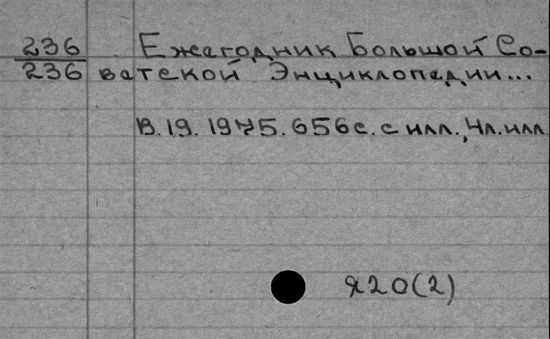 236 Ежегодник Большой Со-
236 ветской Энциклопедии...
В.19. 1975. 656 с. с илл., 4л. илл.
Я20(2)